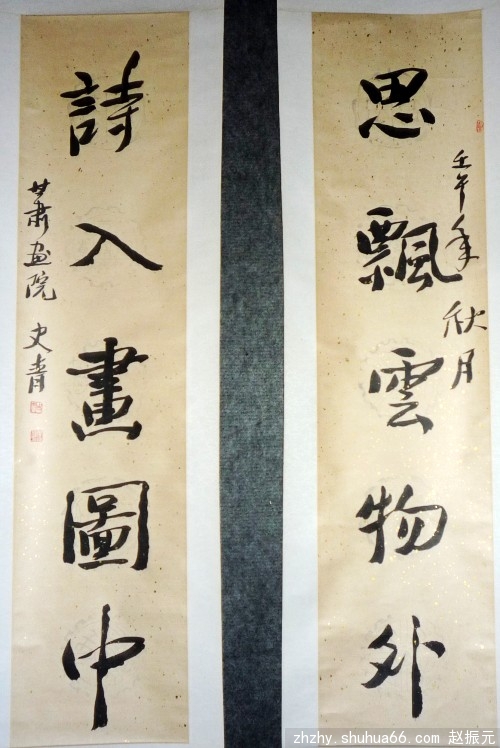 思飄雲物外
壬午年秋月
詩入畫圖中
甘肅画院 史青
zhzhy.shuhua66.com 赵振元